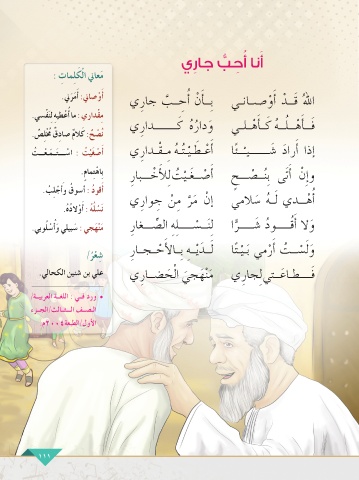 أَنا أُحِبُّ جارِي
اللهُ قَدْ أَوْصـانـي بِـأَنْ أُحِـبَّ جارِي
فَـأَهْـلُـهُ كَـأَهْـلـي وَدارُهُ كَـــدارِي
إذا أَرادَ شَـــيْـــئًا أَعْطَيْـتُـهُ مِـقْـدارِي
وإنْ أَتَى بِنُـصْـحٍ أَصْـغَـيْـتُ لِلأَخْـبـارِ
أُهْـدي لَـهُ سَلامي إنْ مَرَّ مِنْ جِوارِي
وَلا أَقُــودُ شَــرًّا لِنَسْــلِهِ الصِّغـارِ
وَلَسْتُ أَرْمي بَيْتًا لَدَيْـهِ بِـالأَحْـجـارِ
فَـطـاعَتي لِجارِي مَنْهَجيَ الْحَضـارِي
مَعاني الْكَلِماتِ :
أَوْصاني: أَمَرَني.
مِقْداري: ما أُعْطيهِ لنَفْسي.
نُصْحٌ: كَلامٌ صادِقٌ مُخْلِصٌ.
أَصْغَيْتُ : اسْـتَـمَـعْـتُ
باهتمامٍ.
أَقودُ: أسوقُ وأَجْلبُ.
نَسْلُهُ : أَوْلادُهُ.
مَنْهَجي: سَبيلي وأُسْلُوبي.
شِعْرُ/
علي بن شنين الكحالي.
• ورد في: اللغة العربية/
الصف الثالث/الجزء
الأول/الطبعة ٢٠٠٤م.
١١١